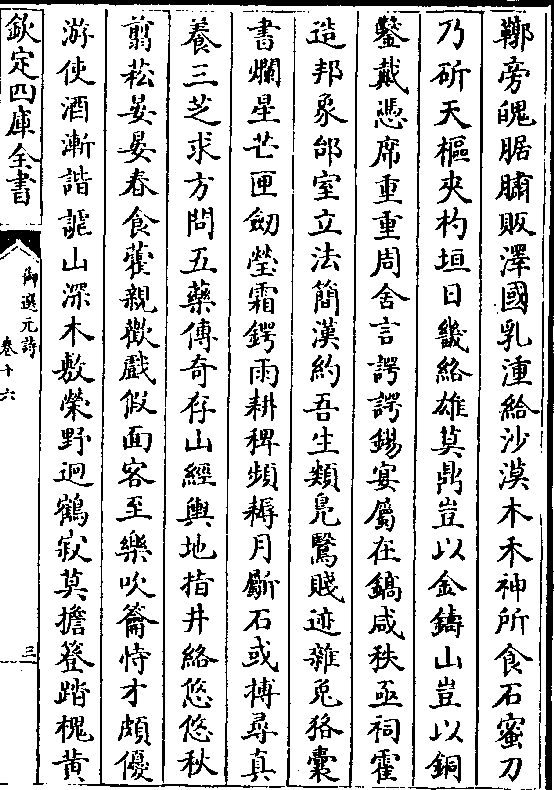 鞹旁皅腒䐹販澤國乳湩給沙漠木禾神所食石蜜刀
乃斫天樞夾杓垣日畿絡雄莫鼎豈以金鑄山豈以銅
鑿戴憑席重重周舍言諤諤錫宴屬在鎬咸秩亟祠霍
造邦象邰室立法簡漢約吾生類鳧鷖賤迹雜兎狢囊
書爛星芒匣劒瑩霜鍔雨耕稗頻耨月斸石或搏尋真
養三芝求方問五藥傳奇存山經輿地指井絡悠悠秋
翦菘晏晏春食藿親歡戲假面客至樂吹籥恃才頗優
游使酒漸諧謔山深木敷榮野迥鶴寂莫擔簦踏槐黄
欽定四庫全書
御選元詩
卷十六
三